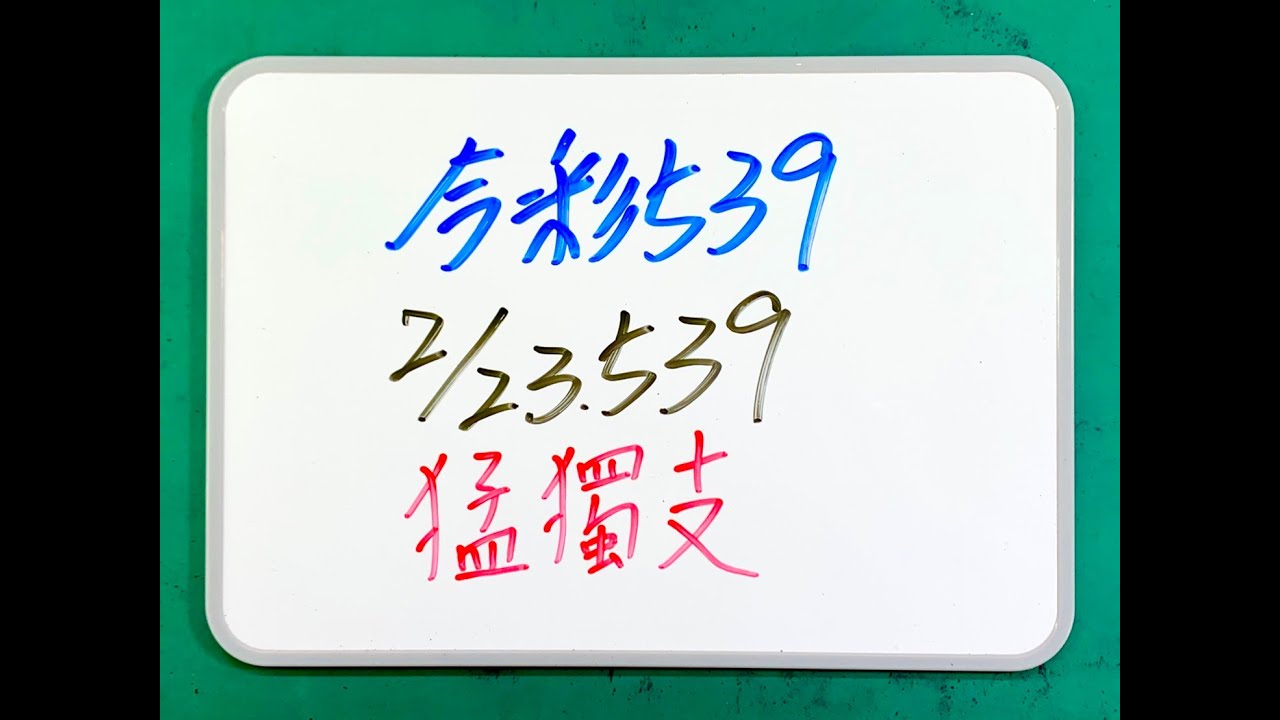 今彩539
2/23.539
猛獨支